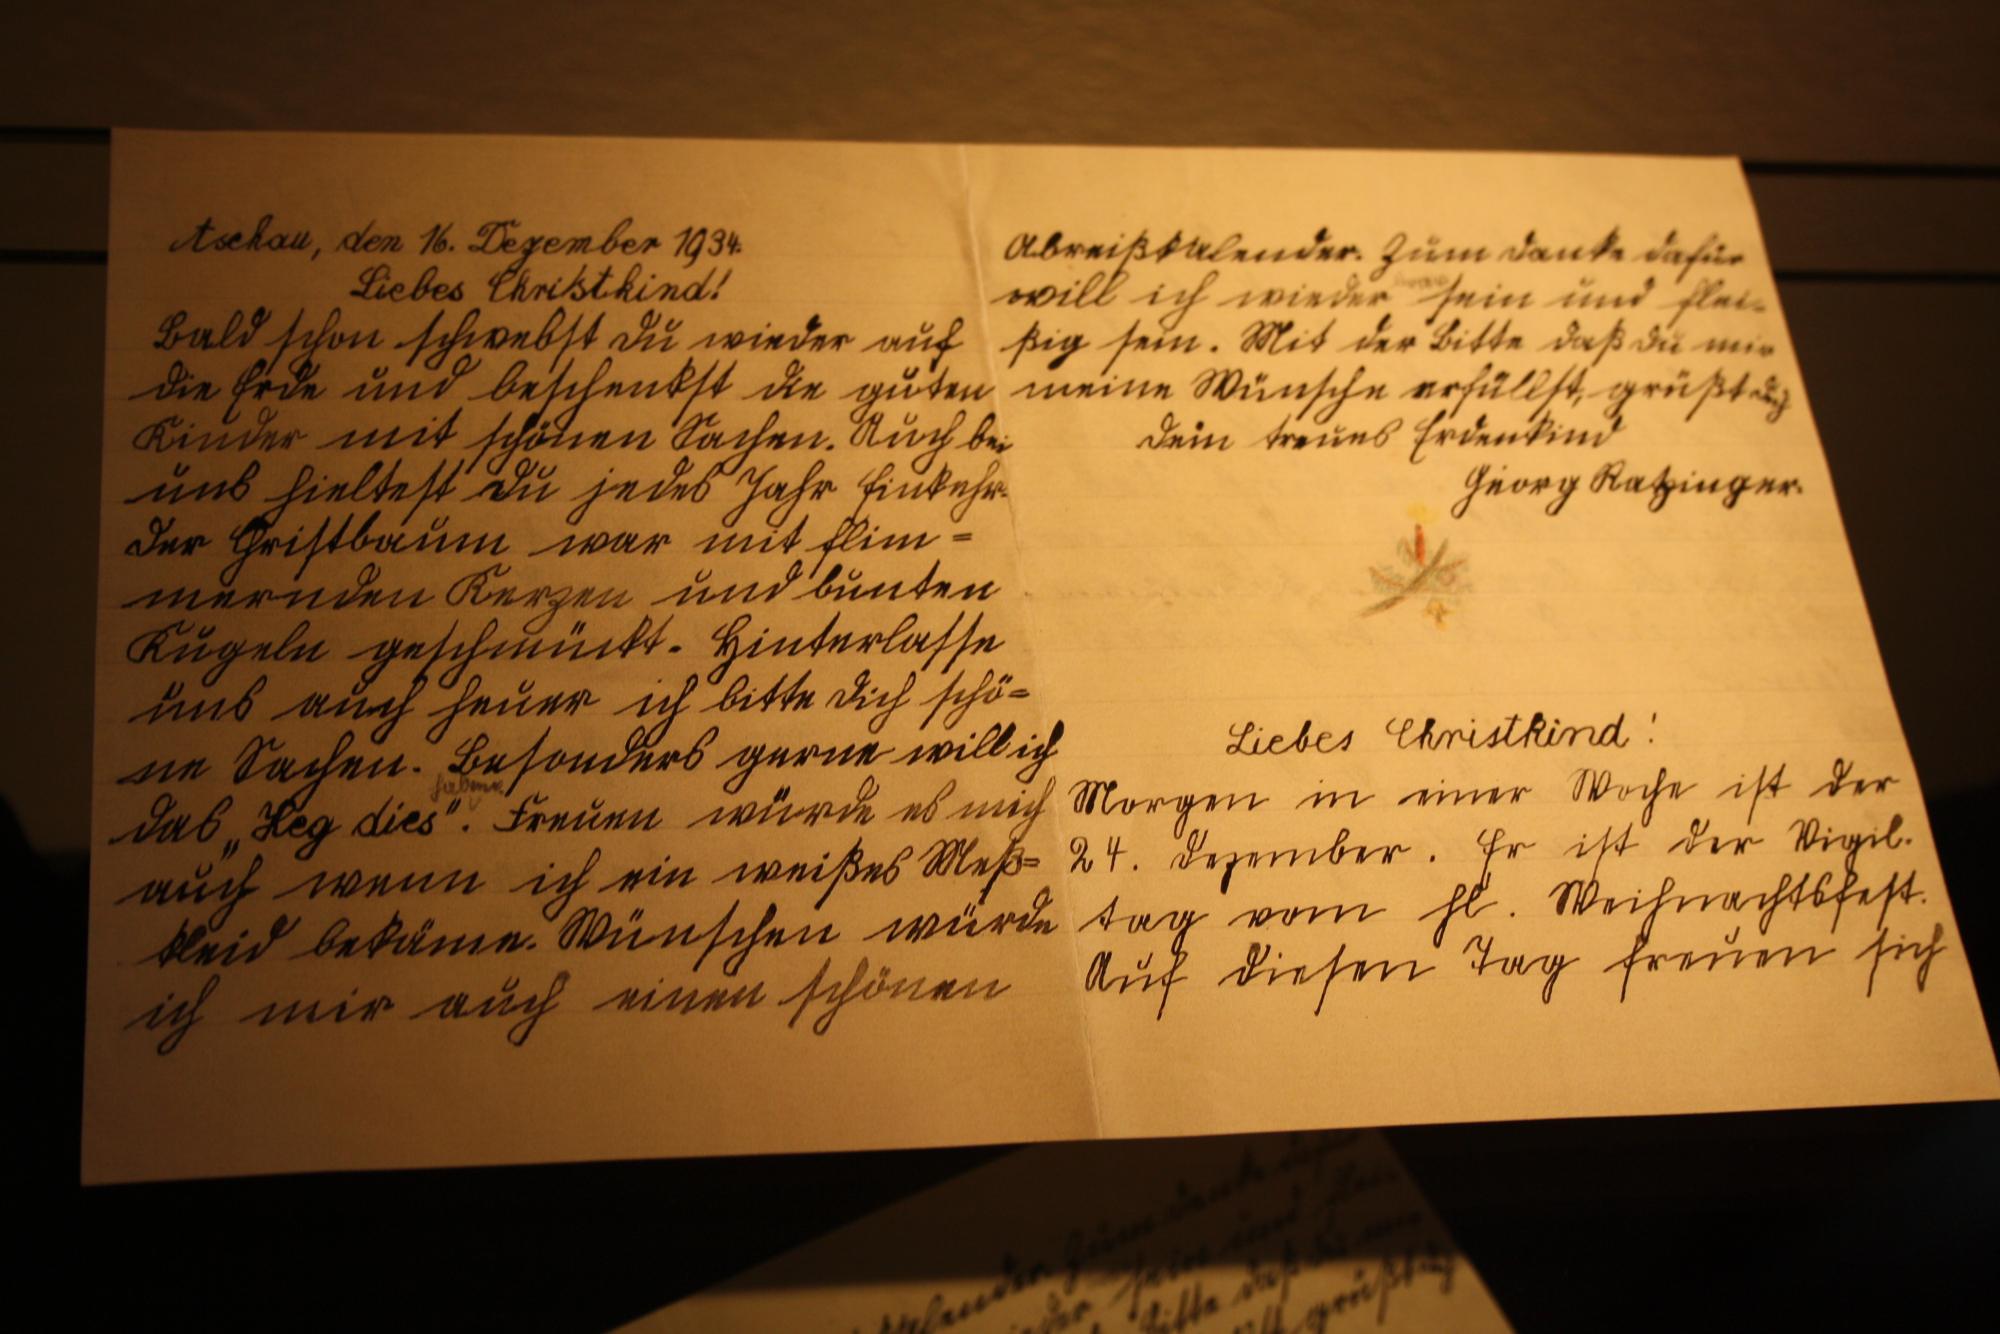 Aschau, den 16. Dezember 1934.
Liebes Christkind!
Bald schon schwebst Du wieder auf
die Erde und beschenkst die guten
Kinder mit schönen Sachen. Auch bei
uns hieltest Du jedes Jahr Einkehr.
Der Christbaum war mit flim=
mernden Kerzen und bunten
Kugeln geschmückt. Hinterlasse
uns auch heuer ich bitte Dich schö=
ne Sachen. Besonders gerne will ich
haben
das „Heg dies". Freuen würde es mich
auch wenn ich ein weißes Meß=
kleid bekäme. Wünschen würde
ich mir auch einen schönen
Abreißkalender. Zum Danke dafür
will ich wieder brav sein und flei=
ßig sein. Mit der Bitte daß Du mir
meine Wünsche erfüllst, grüßt Dich
Dein treues Erdenkind
Georg Ratzinger.
Liebes Christkind!
Morgen in einer Woche ist der
24. Dezember. Er ist der Vigil.
tag vom hl. Weihnachtsfest.
Auf diesen Tag freuen sich